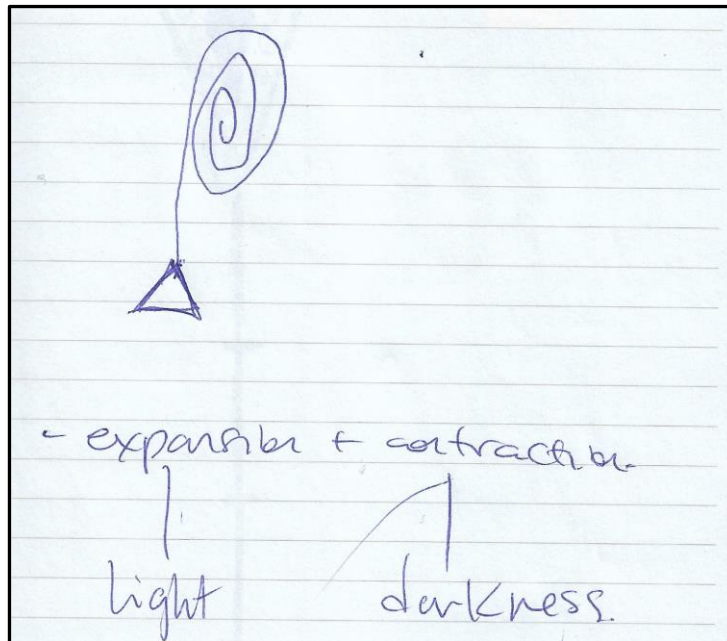 - expansion + contraction.
light darkness.